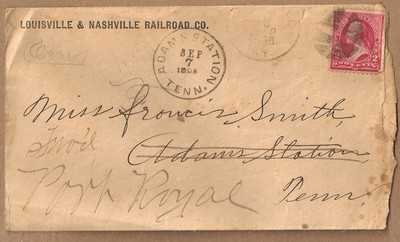 LOUISVILLE & NASHVILLE RAILROAD CO.
ADAMS STATION
SEP
7
TENN.
TWO CENTS 2
Miss Francis Smith,
Adams Station,
Port Royal
Tenn.